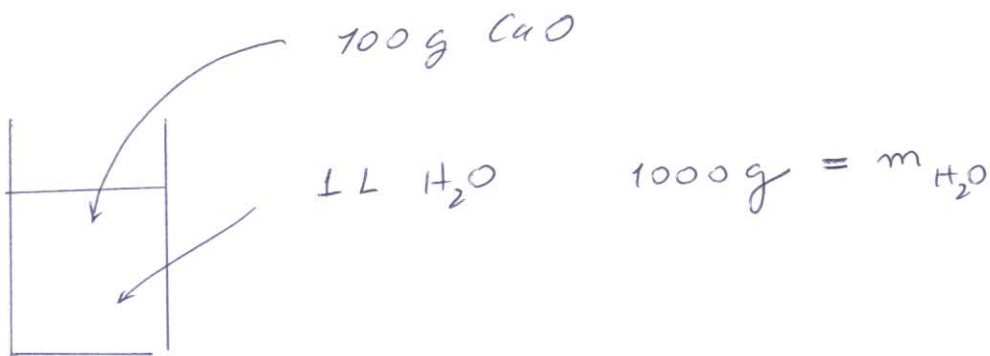 100 g CaO
1 L H₂O 1000 g = m H₂O